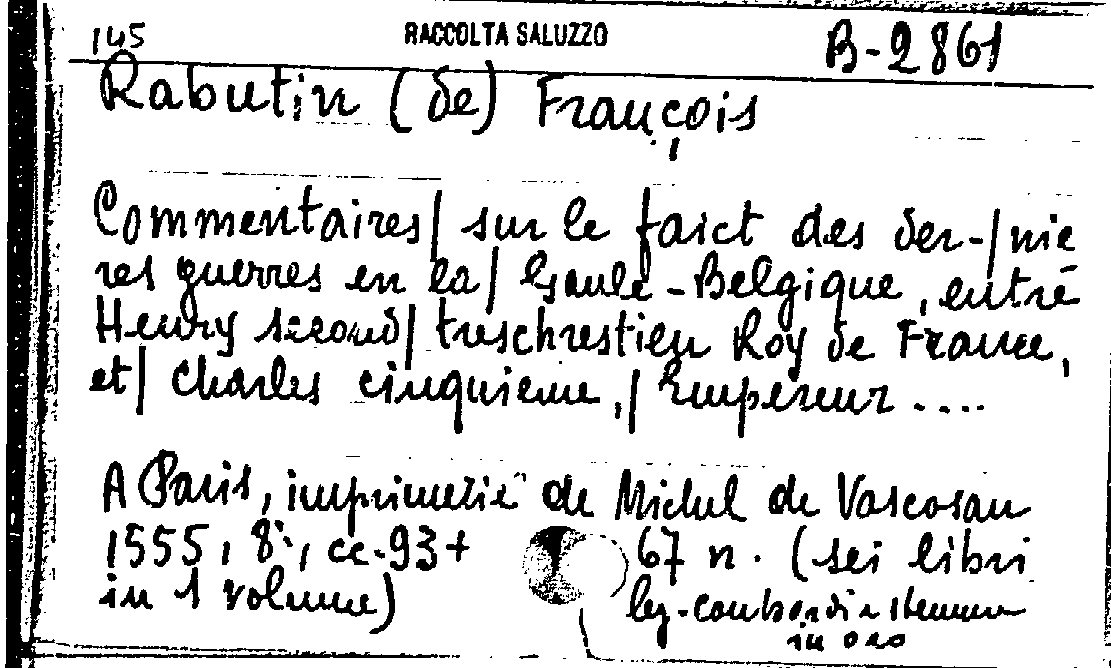 145 RACCOLTA SALUZZO B-2861
Rabutin (de) François
Commentaires/ sur le faict des der-/nie
res guerres en la/ Gaule-Belgique, entre
Henry second/ treschrestien Roy de France,
et/ Charles cinquieme,/ Empereur....
A Paris, imprimerie de Michel de Vascosan
1555, 8°, cc. 93+ 67 n. (sei libri
in 1 volume) leg. con bordi e stemma
in oro